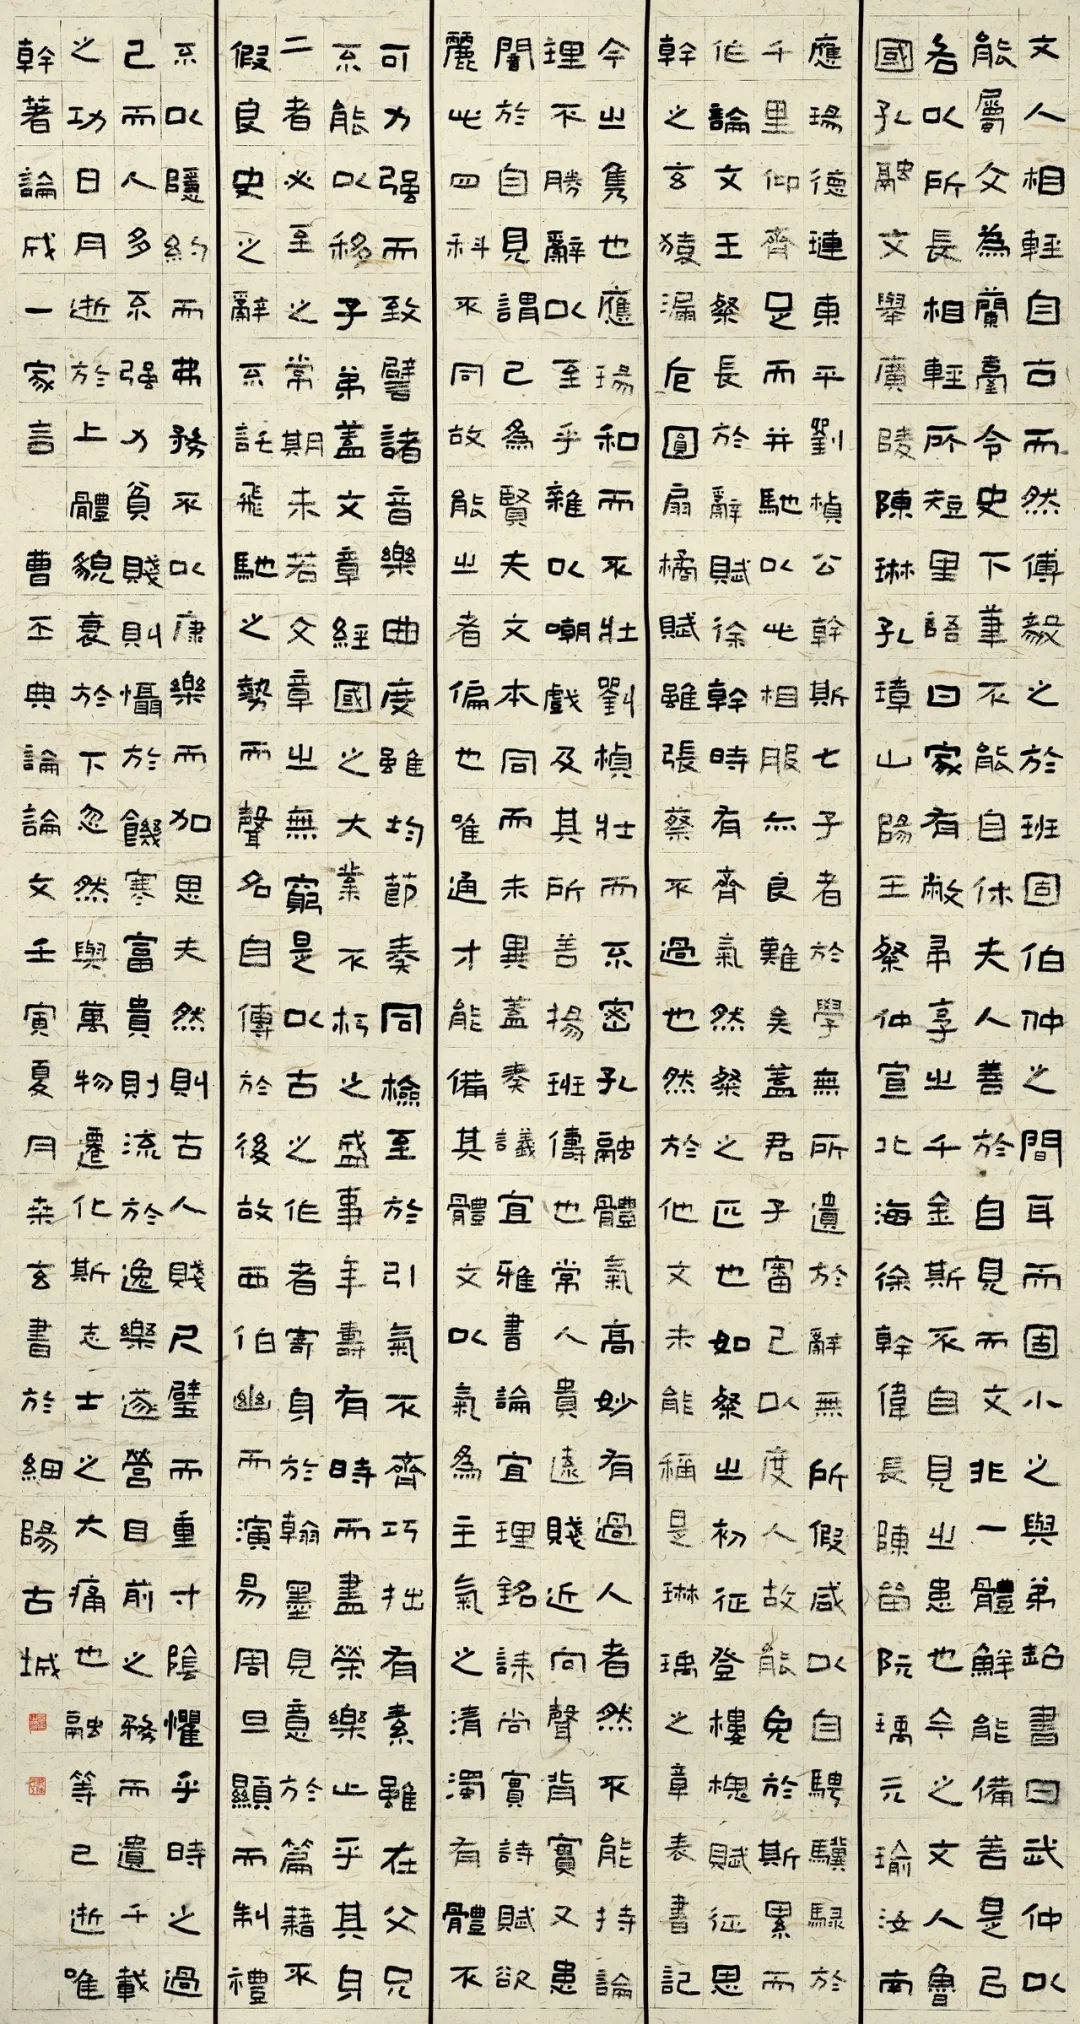 文人相輕自古而然傅毅之於班固伯仲之間耳而固小之與弟超書曰武仲以
能屬文為蘭臺令史下筆不能自休夫人善於自見而文非一體鮮能備善是以
各以所長相輕所短里語曰家有敝帚享之千金斯不自見之患也今之文人魯
國孔融文舉廣陵陳琳孔璋山陽王粲仲宣北海徐幹偉長陳留阮瑀元瑜汝南
應瑒德璉東平劉楨公幹斯七子者於學無所遺於辭無所假咸以自騁驥騄於
千里仰齊足而并馳以此相服亦良難矣蓋君子審己以度人故能免於斯累而
作論文王粲長於辭賦徐幹時有齊氣然粲之匹也如粲之初征登樓槐賦征思
幹之玄猿漏卮圓扇橘賦雖張蔡不過也然於他文未能稱是琳瑀之章表書記
今之隽也應瑒和而不壯劉楨壯而不密孔融體氣高妙有過人者然不能持論
理不勝辭以至乎雜以嘲戲及其所善揚班儔也常人貴遠賤近向聲背實又患
闇於自見謂己為賢夫文本同而未異蓋奏議宜雅書論宜理銘誄尚實詩賦欲
麗此四科不同故能之者偏也唯通才能備其體文以氣為主氣之清濁有體不
可力强而致譬諸音樂曲度雖均節奏同檢至於引氣不齊巧拙有素雖在父兄
不能以移子弟蓋文章經國之大業不朽之盛事年壽有時而盡榮樂止乎其身
二者必至之常期未若文章之無窮是以古之作者寄身於翰墨見意於篇藉不
假良史之辭不託飛馳之勢而聲名自傳於後故西伯幽而演易周旦顯而制禮
不以隱約而弗務不以康樂而加思夫然則古人賤尺璧而重寸陰懼乎時之過
己而人多不强力貧賤則懾於饑寒富貴則流於逸樂遂營目前之務而遺千載
之功日月逝於上體貌衰於下忽然與萬物遷化斯志士之大痛也融等已逝唯
幹著論成一家言 曹丕典論論文壬寅夏月桒玄書於細陽古城